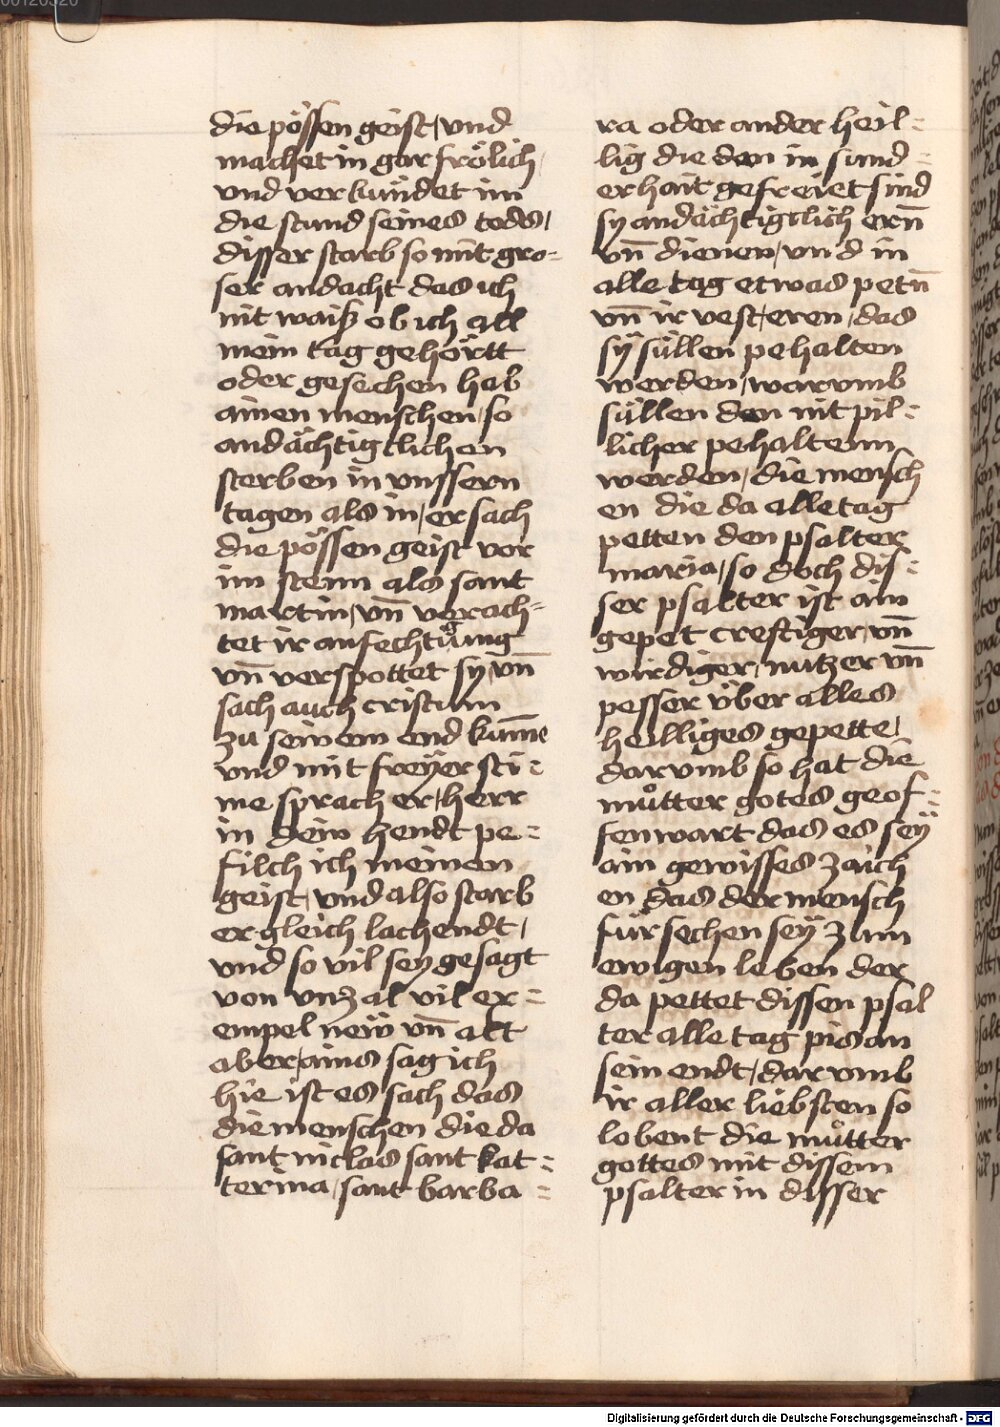 die pössen geist, vnd
machet in gar frölich,
vnd verkündet im
die stund seines tods,
disser starb so mit gro=
ser andacht das ich
nit waiß ob ich all
mein tag gehörtt
oder gesechen hab
ainen menschen, so
andächtigtlichen
sterben in vnssern
tagen als in, er sach
die pössen geist vor
im stenn als sant
martin, vn̄ verach=
tet ir anfechtung
vn̄ verspottet sy, vn̄
sach auch cristum
zu seinem end kum̄e
vnd mit freÿer sti=
me sprach er, herr
in dein hendt pe=
filch ich meinen
geist, vnd also starb
er gleich lachendt,
vnd so vil seÿ gesagt
von vnzal vil ex=
empel neẅ vn̄ alt
aber, ains sag ich
hie ist es sach das
die menschen die da
sant niclas sant kat=
terina, sant barba=
ra oder ander heil=
lig die den in sund=
erhait gefreiet sind
sy andächtigtlich ern̄
vn̄ dienen, vnd in
alle tag etwas petn̄
vn̄ ir vest, eren, das
sÿ süllen pehalten
werden, warvmb
süllen den nit pil=
licher pehaltenn
werden, die mensch
en die da alle tag
petten den psalter
maria, so doch dis=
ser psalter ist ain
gepet creftiger, vn̄
wirdiger, nutzer vn̄
pesser über alles
heilliges gepette,
darvmb so hat die
můtter gotes geof=
fenwart das es seÿ
ain gewisses zaich
en das der mensch
fürsechen seÿ zum
ewigen leben der
da pettet dissen psal
ter alle tag pis an
sein endt, darvmb
ir aller liebsten so
lobent die můtter
gottes mit dissem
psalter in disser
Digitalisierung gefördert durch die Deutsche Forschungsgemeinschaft - DFG